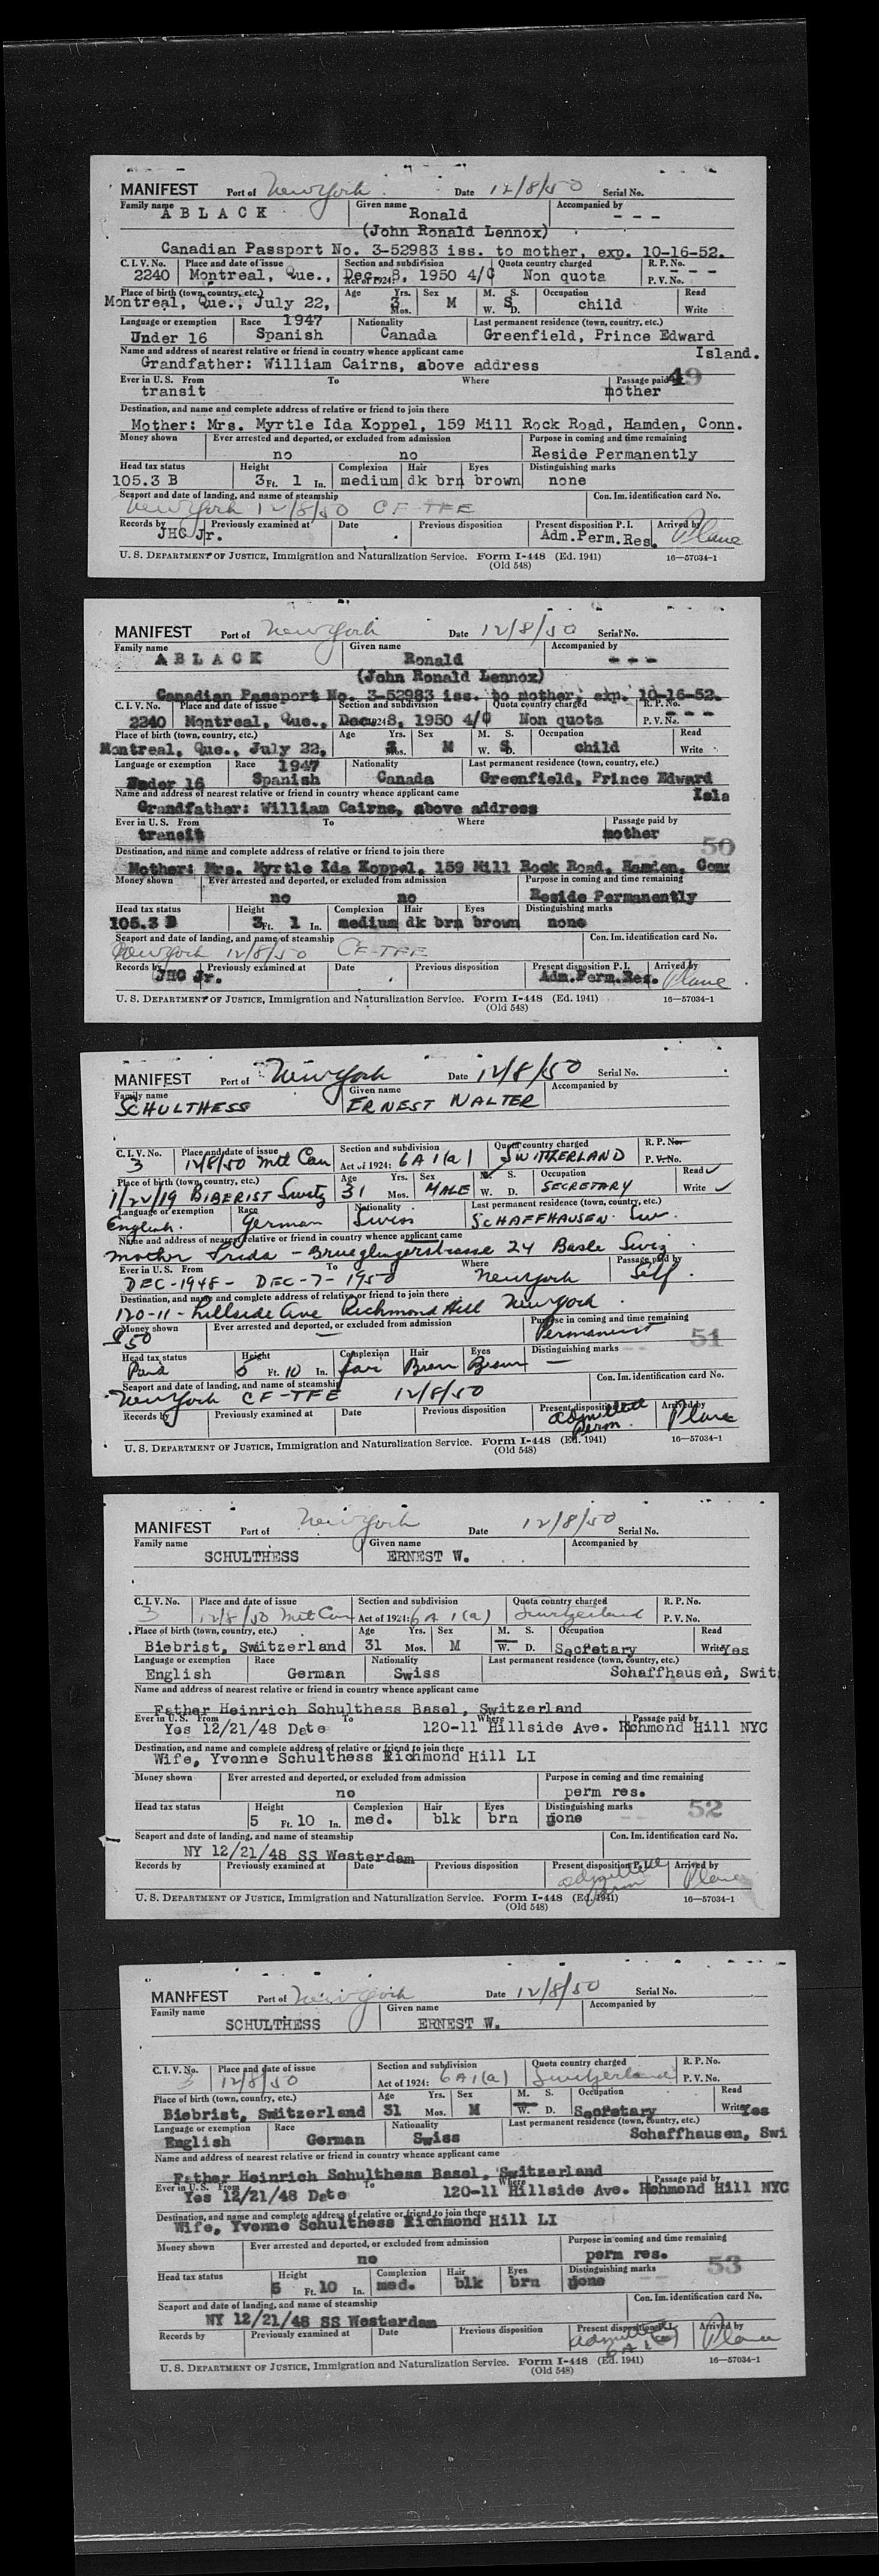 MANIFEST Port of New York Date 12/8/50 Serial No.
Family name ABLACK Given name Ronald Accompanied by - - -
(John Ronald Lennox)
Canadian Passport No. 3-52983 iss. to mother, exp. 10-16-52.
C. I. V. No. Place and date of issue Section and subdivision Quota country charged R. P. No.
2240 Montreal, Que., Dec. 8, 1950 Act of 1924: 4/C Non quota - - - P. V. No.
Place of birth (town, country, etc.) Age Yrs. Sex M. S. Occupation Read
Montreal, Que., July 22, 3 Mos. M W. D. S child Write
Language or exemption Race 1947 Nationality Last permanent residence (town, country, etc.)
Under 16 Spanish Canada Greenfield, Prince Edward
Name and address of nearest relative or friend in country whence applicant came Island.
Grandfather: William Cairns, above address
Ever in U. S. From To Where Passage paid 49
transit mother
Destination, and name and complete address of relative or friend to join there
Mother: Mrs. Myrtle Ida Koppel, 159 Mill Rock Road, Hamden, Conn.
Money shown Ever arrested and deported, or excluded from admission Purpose in coming and time remaining
no no Reside Permanently
Head tax status Height Complexion Hair Eyes Distinguishing marks
105.3 B 3 Ft. 1 In. medium dk brn brown none
Seaport and date of landing, and name of steamship Con. Im. identification card No.
New York 12/8/50 CF-TFE
Records by Previously examined at Date Previous disposition Present disposition P. I. Arrived by
JHC Jr. Adm.Perm.Res. Plane
U. S. DEPARTMENT OF JUSTICE, Immigration and Naturalization Service. Form I-448 (Ed. 1941) 16—57034-1
(Old 548)
MANIFEST Port of New York Date 12/8/50 Serial No.
Family name ABLACK Given name Ronald Accompanied by - - -
(John Ronald Lennox)
Canadian Passport No. 3-52983 iss. to mother, exp. 10-16-52.
C. I. V. No. Place and date of issue Section and subdivision Quota country charged R. P. No.
2240 Montreal, Que., Dec. 8, 1950 4/C Non quota - - - P. V. No.
Place of birth (town, country, etc.) Age Yrs. Sex M. S. Occupation Read
Montreal, Que., July 22, 3 Mos. M W. D. S child Write
Language or exemption Race 1947 Nationality Last permanent residence (town, country, etc.)
Under 16 Spanish Canada Greenfield, Prince Edward
Name and address of nearest relative or friend in country whence applicant came Isla
Grandfather: William Cairns, above address
Ever in U. S. From To Where Passage paid by
transit mother
Destination, and name and complete address of relative or friend to join there 50
Mother: Mrs. Myrtle Ida Koppel, 159 Mill Rock Road, Hamden, Conn
Money shown Ever arrested and deported, or excluded from admission Purpose in coming and time remaining
no no Reside Permanently
Head tax status Height Complexion Hair Eyes Distinguishing marks
105.3 B 3 Ft. 1 In. medium dk brn brown none
Seaport and date of landing, and name of steamship Con. Im. identification card No.
New York 12/8/50 CF-TFE
Records by Previously examined at Date Previous disposition Present disposition P. I. Arrived by
JHC Jr. Adm.Perm.Res. Plane
U. S. DEPARTMENT OF JUSTICE, Immigration and Naturalization Service. Form I-448 (Ed. 1941) 16—57034-1
(Old 548)
MANIFEST Port of New York Date 12/8/50 Serial No.
Family name Given name Accompanied by
SCHULTHESS ERNEST WALTER
C. I. V. No. Place and date of issue Section and subdivision Quota country charged R. P. No.
3 12/8/50 Mtl Can Act of 1924: 6A1(a) SWITZERLAND P. V. No.
Place of birth (town, country, etc.) Age Yrs. Sex M. S. Occupation Read ✓
1/22/19 BIBERIST Switz 31 Mos. MALE W. D. SECRETARY Write ✓
Language or exemption Race Nationality Last permanent residence (town, country, etc.)
English. German Swiss SCHAFFHAUSEN Sw.
Name and address of nearest relative or friend in country whence applicant came
mother Frida - Brueglingerstrasse 24 Basle Swiz
Ever in U. S. From To Where Passage paid by
DEC-1948- DEC-7-1950 New York Self
Destination, and name and complete address of relative or friend to join there
120-11- Hillside Ave Richmond Hill New York
Money shown Ever arrested and deported, or excluded from admission Purpose in coming and time remaining
$50 — Permanent 51
Head tax status Height Complexion Hair Eyes Distinguishing marks
Paid 5 Ft. 10 In. fair Brown Brown —
Seaport and date of landing, and name of steamship Con. Im. identification card No.
New York CF-TFE 12/8/50
Records by Previously examined at Date Previous disposition Present disposition Arrived by
admitted Perm. Plane
U. S. DEPARTMENT OF JUSTICE, Immigration and Naturalization Service. Form I-448 (Ed. 1941) 16—57034-1
(Old 548)
MANIFEST Port of New York Date 12/8/50 Serial No.
Family name Given name Accompanied by
SCHULTHESS ERNEST W.
C. I. V. No. Place and date of issue Section and subdivision Quota country charged R. P. No.
3 12/8/50 Mtl Can Act of 1924: 6A1(a) Switzerland P. V. No.
Place of birth (town, country, etc.) Age Yrs. Sex M. S. Occupation Read
Biebrist, Switzerland 31 Mos. M W. D. Secretary Write Yes
Language or exemption Race Nationality Last permanent residence (town, country, etc.)
English German Swiss Schaffhausen, Swit
Name and address of nearest relative or friend in country whence applicant came
Father Heinrich Schulthess Basel, Switzerland
Ever in U. S. From To Where Passage paid by
Yes 12/21/48 Date 120-11 Hillside Ave. Richmond Hill NYC
Destination, and name and complete address of relative or friend to join there
Wife, Yvonne Schulthess Richmond Hill LI
Money shown Ever arrested and deported, or excluded from admission Purpose in coming and time remaining
no perm res.
Head tax status Height Complexion Hair Eyes Distinguishing marks 52
5 Ft. 10 In. med. blk brn none
Seaport and date of landing, and name of steamship Con. Im. identification card No.
NY 12/21/48 SS Westerdam
Records by Previously examined at Date Previous disposition Present disposition P. I. Arrived by
admitted Perm Plane
U. S. DEPARTMENT OF JUSTICE, Immigration and Naturalization Service. Form I-448 (Ed. 1941) 16—57034-1
(Old 548)
MANIFEST Port of New York Date 12/8/50 Serial No.
Family name Given name Accompanied by
SCHULTHESS ERNEST W.
C. I. V. No. Place and date of issue Section and subdivision Quota country charged R. P. No.
3 12/8/50 Act of 1924: 6A1(a) Switzerland P. V. No.
Place of birth (town, country, etc.) Age Yrs. Sex M. S. Occupation Read
Biebrist, Switzerland 31 Mos. M W. D. Secretary Write Yes
Language or exemption Race Nationality Last permanent residence (town, country, etc.)
English German Swiss Schaffhausen, Swi
Name and address of nearest relative or friend in country whence applicant came
Father Heinrich Schulthess Basel, Switzerland
Ever in U. S. From To Where Passage paid by
Yes 12/21/48 Date 120-11 Hillside Ave. Richmond Hill NYC
Destination, and name and complete address of relative or friend to join there
Wife, Yvonne Schulthess Richmond Hill LI
Money shown Ever arrested and deported, or excluded from admission Purpose in coming and time remaining
no perm res.
Head tax status Height Complexion Hair Eyes Distinguishing marks 53
5 Ft. 10 In. med. blk brn none
Seaport and date of landing, and name of steamship Con. Im. identification card No.
NY 12/21/48 SS Westerdam
Records by Previously examined at Date Previous disposition Present disposition P. I. Arrived by
admitted Plane
U. S. DEPARTMENT OF JUSTICE, Immigration and Naturalization Service. Form I-448 (Ed. 1941) 16—57034-1
(Old 548)